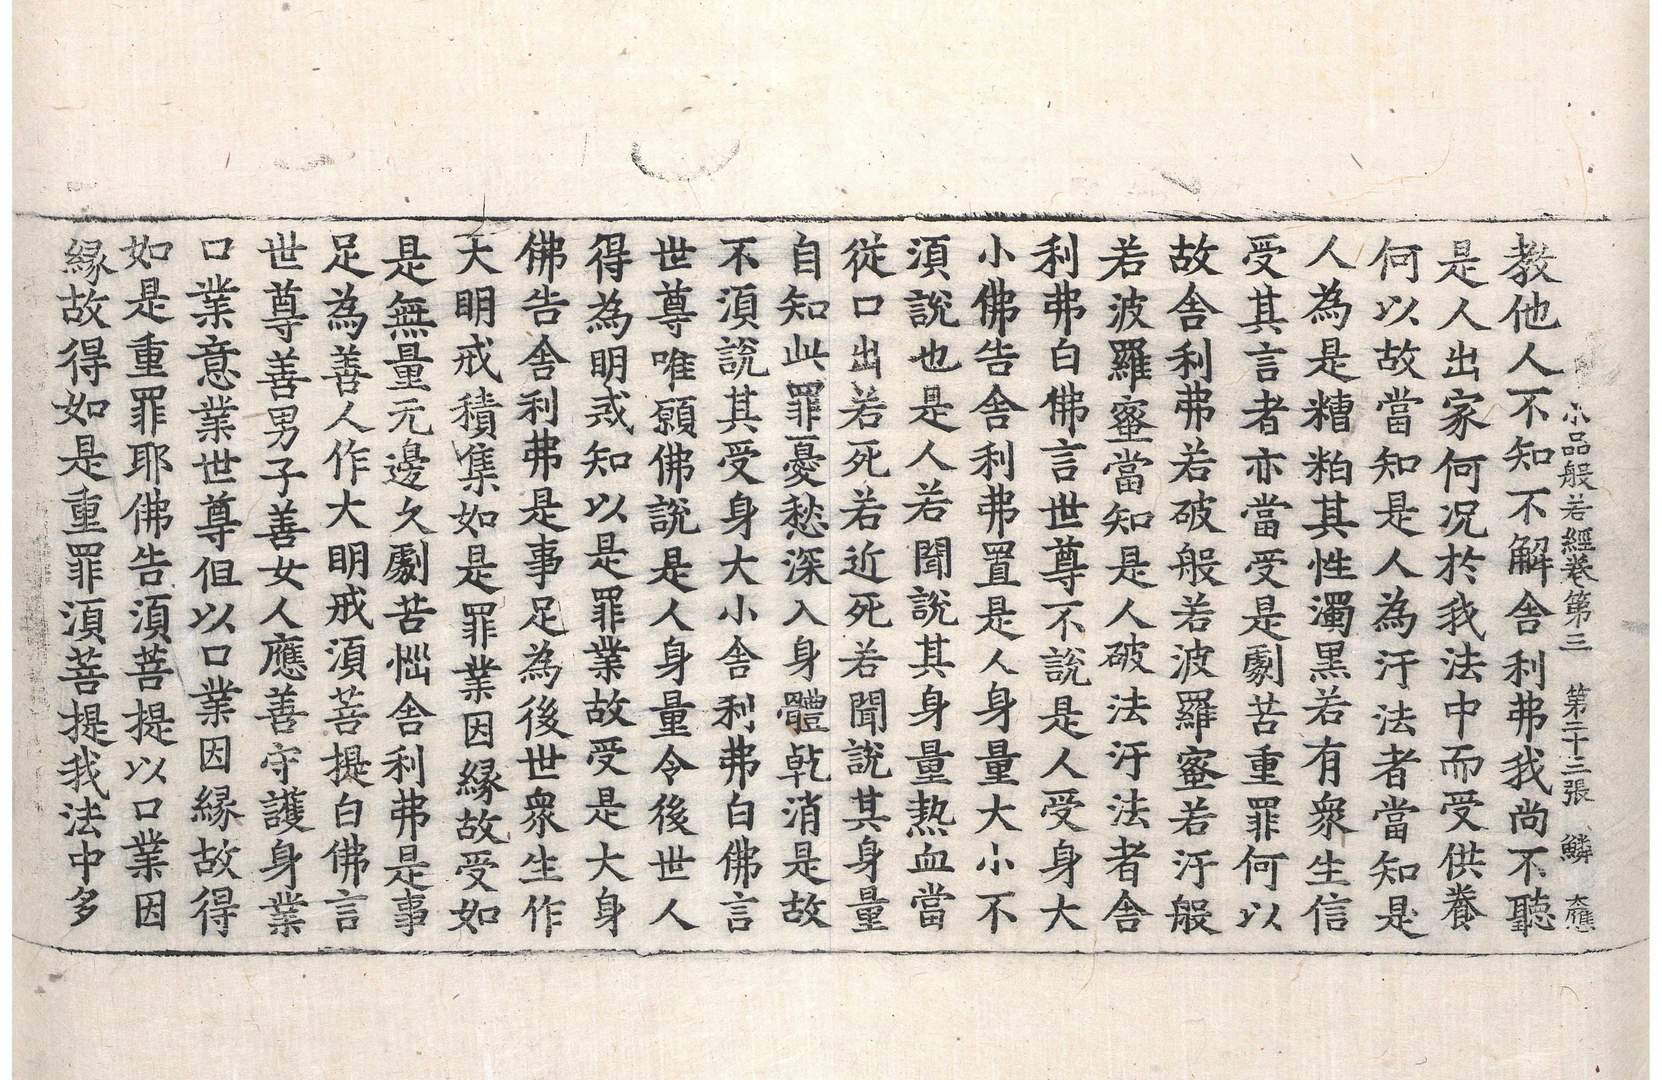 小品般若經卷第三 第二十三張 鱗 大應
教他人不知不解舍利弗我尚不聽
是人出家何況於我法中而受供養
何以故當知是人為汙法者當知是
人為是糟粕其性濁黑若有衆生信
受其言者亦當受是劇苦重罪何以
故舍利弗若破般若波羅蜜若汙般
若波羅蜜當知是人破法汙法者舍
利弗白佛言世尊不說是人受身大
小佛告舍利弗置是人身量大小不
湏說也是人若聞說其身量熱血當
從口出若死若近死若聞說其身量
自知此罪憂愁深入身體乾消是故
不湏說其受身大小舍利弗白佛言
世尊唯願佛說是人身量令後世人
得為明戒知以是罪業故受是大身
佛告舍利弗是事足為後世衆生作
大明戒積集如是罪業因緣故受如
是無量无邊久劇苦惱舍利弗是事
足為善人作大明戒湏菩提白佛言
世尊善男子善女人應善守護身業
口業意業世尊但以口業因緣故得
如是重罪耶佛告湏菩提以口業因
緣故得如是重罪湏菩提我法中多